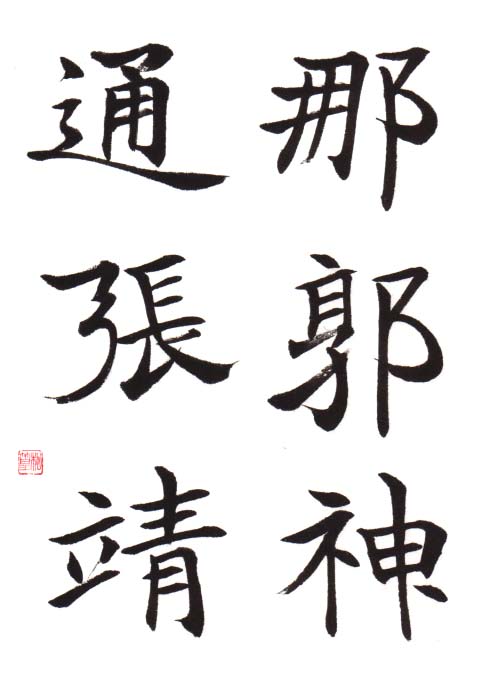 那郭神
通張靖